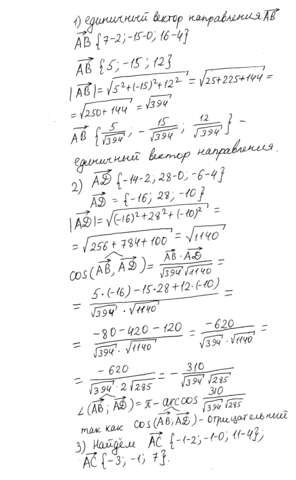 1) единичный вектор направления AB
AB {7-2; -15-0; 16-4}
AB {5; -15; 12}
|AB| = √5²+(-15)²+12² = √25+225+144 =
= √250+144 = √394
AB {5/√394; -15/√394; 12/√394} -
единичный вектор направления.
2) AD {-14-2, 28-0, -6-4}
AD = {-16; 28; -10}
|AD| = √(-16)²+28²+(-10)² =
= √256+784+100 = √1140
cos(AB, AD) = AB·AD/√394 √1140 =
= 5·(-16)-15·28+12·(-10)/√394 · √1140 =
= -80-420-120/√394 · √1140 = -620/√394 · √1140 =
= -620/√394 · 2√285 = - 310/√394 √285
∠(AB; AD) = π - arccos 310/√394 √285
так как cos(AB; AD) - отрицательный
3) Найдём AC {-1-2; -1-0; 11-4};
AC {-3; -1; 7}.